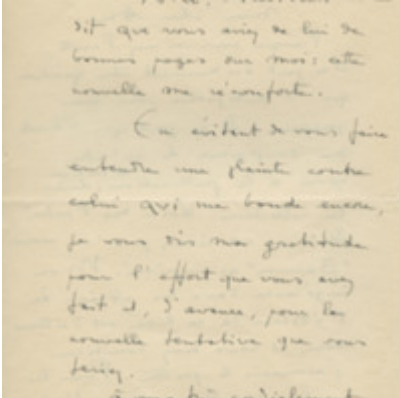 dit que vous aviez de lui de
bonnes pages sur moi : cette
nouvelle me réconforte.
En évitant de vous faire
entendre une plainte contre
celui qui me boude encore,
je vous dis ma gratitude
pour l'effort que vous avez
fait et, d'avance, pour la
nouvelle tentative que vous
ferez.